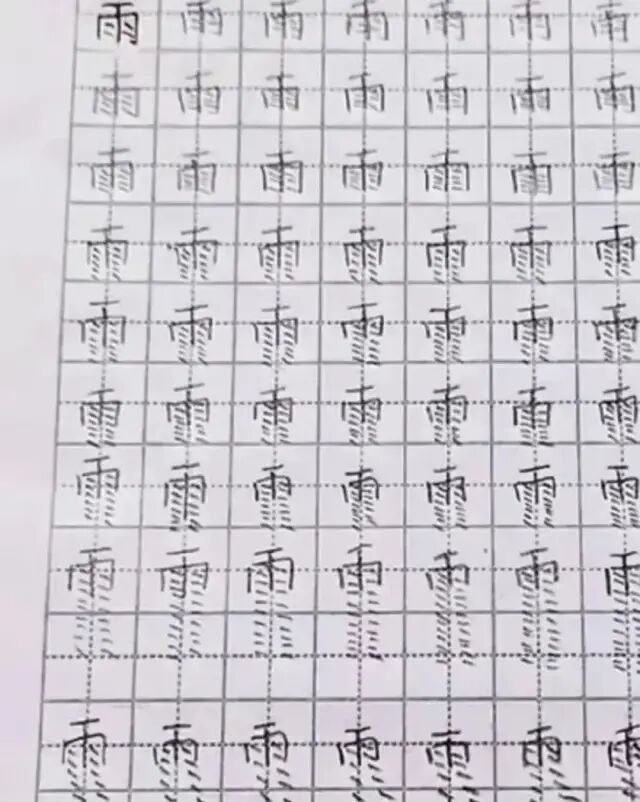 雨雨雨雨雨雨雨
雨雨雨雨雨雨雨
雨雨雨雨雨雨雨
雨雨雨雨雨雨雨
雨雨雨雨雨雨雨
雨雨雨雨雨雨雨
雨雨雨雨雨雨雨
雨雨雨雨雨雨雨
雨雨雨雨雨雨雨